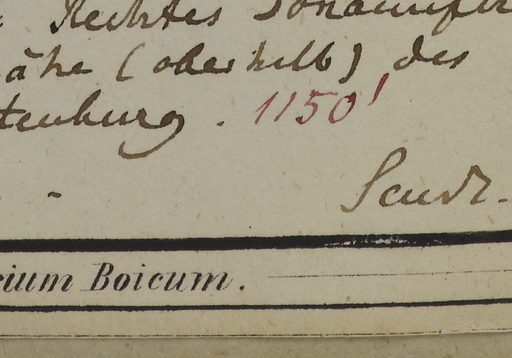 Rechtes Donauufer
ähe (oberhalb) des
tenburg. 1150'
Sendt.
cium Boicum.